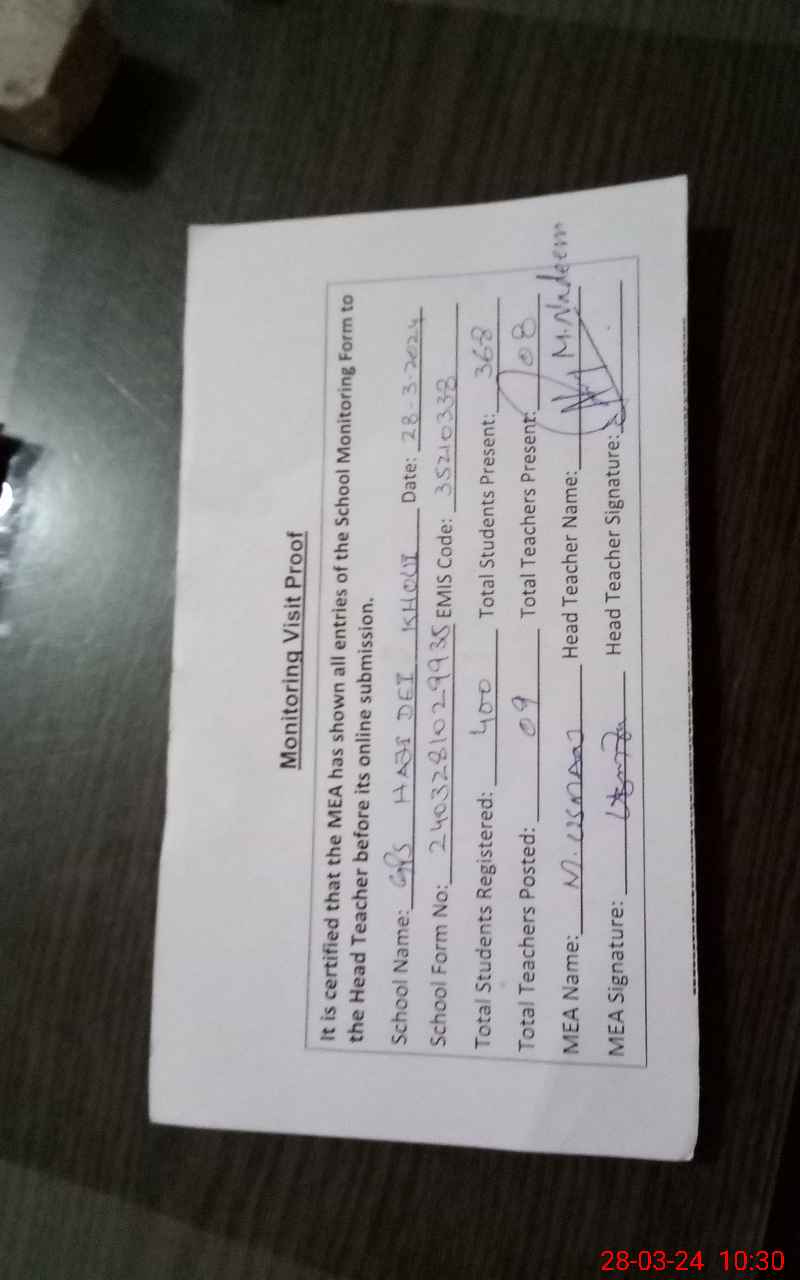 Monitoring Visit Proof
It is certified that the MEA has shown all entries of the School Monitoring Form to
the Head Teacher before its online submission.
School Name: GPS HAJI DEI KHOUI Date: 28-3-2024
School Form No: 2403281029935 EMIS Code: 35210338
Total Students Registered: 400 Total Students Present: 368
Total Teachers Posted: 09 Total Teachers Present: 08
MEA Name: M. USMAAN Head Teacher Name: M. Nadeem
MEA Signature: Head Teacher Signature:
28-03-24 10:30